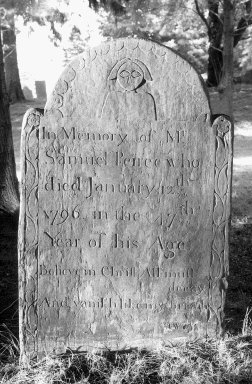 In Memory of Mr
Samuel Peirce who
died January 12th
1796, in the 47th
Year of his Age
Believe in Christ All must
And